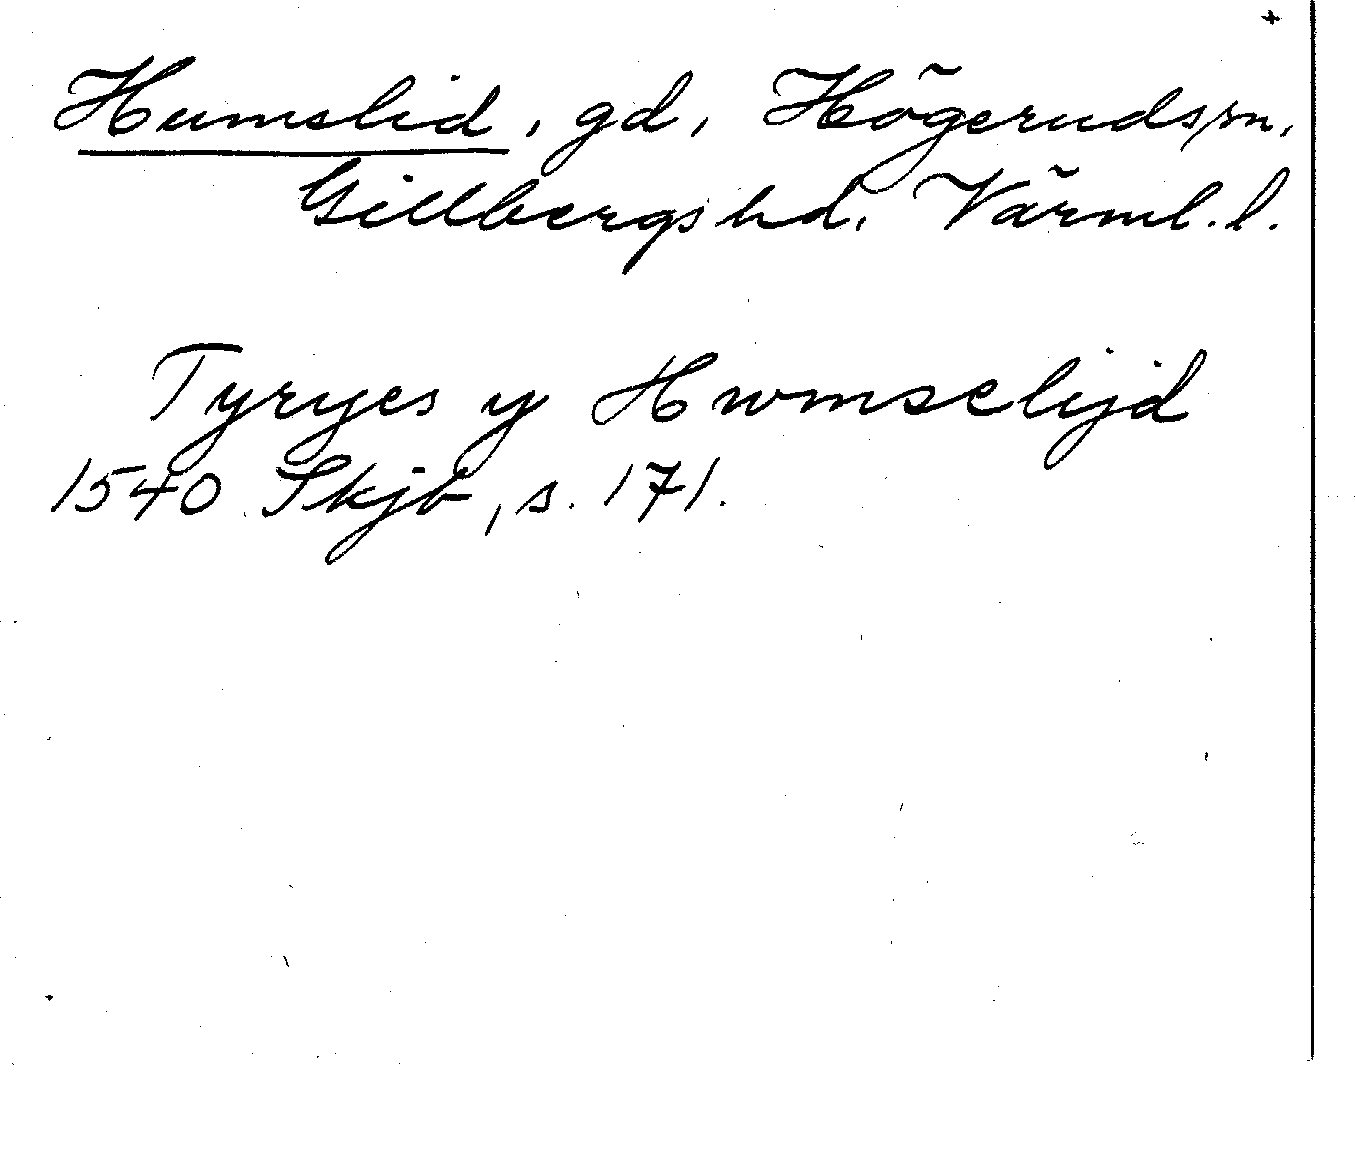 Humslid, gd, Högerudssn,
Gillbergs hd, Värml. l.
Tyryes y Hwmselijd
1540 Skjb, s. 171.